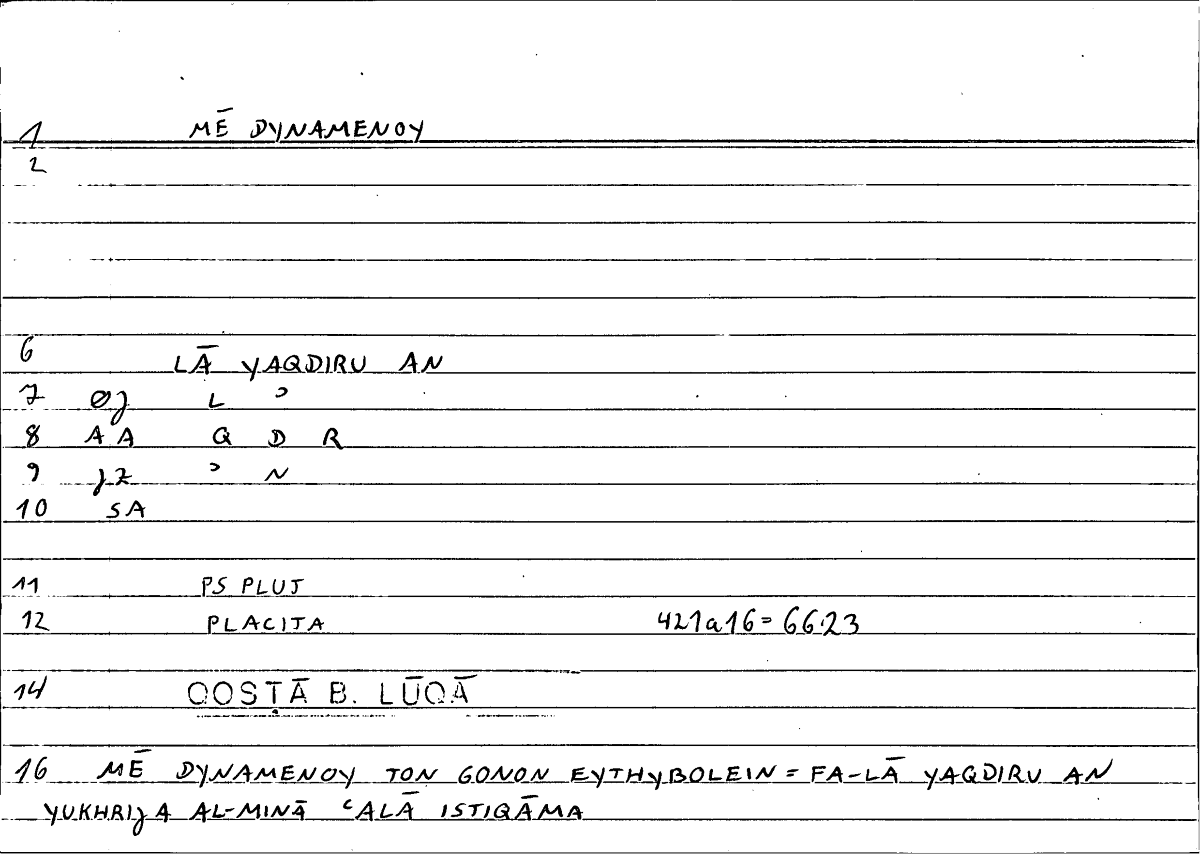 1 MĒ DYNAMENOY
2
6 LĀ YAQDIRU AN
7 ØJ L ʾ
8 AA Q D R
9 JZ ʾ N
10 SA
11 PS PLUT
12 PLACITA 421a16 = 66.23
14 QOSṬĀ B. LŪQĀ
16 MĒ DYNAMENOY TON GONON EYTHYBOLEIN = FA-LĀ YAQDIRU AN
YUKHRIJA AL-MINĀ ʿALĀ ISTIQĀMA